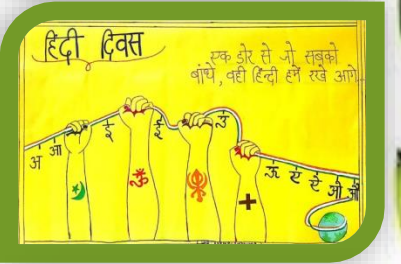 हिंदी दिवस
एक डोर से जो सबको
बांधे, वही हिन्दी हमें रखे आगे..
अ आ इ ई उ
ऊ ए ऐ ओ औ